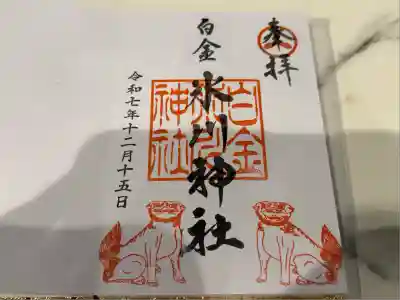 奉拝
白金
氷川神社
白金
氷川
神社
令和七年十二月十五日